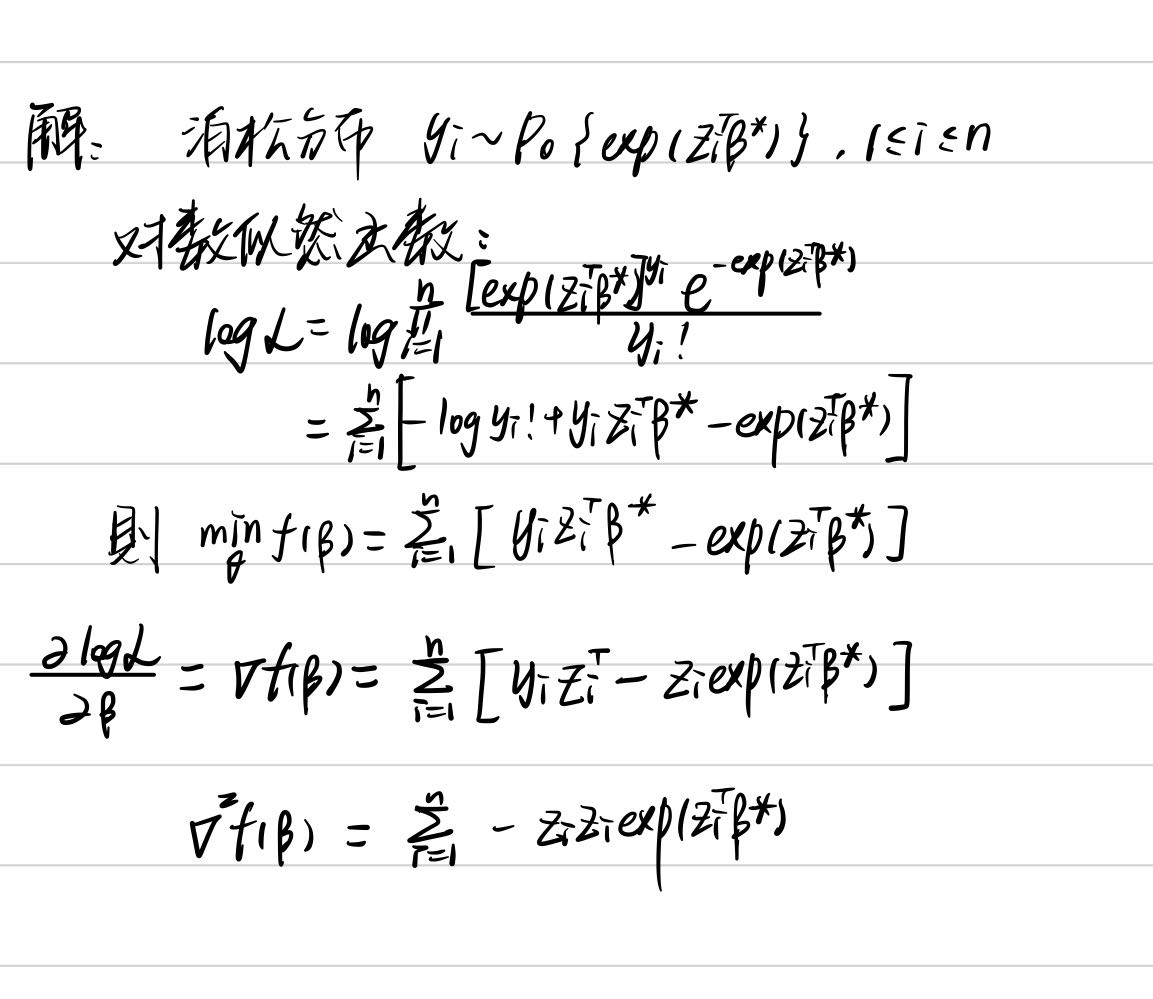 解: 泊松分布 yᵢ ~ Po{exp(zᵢᵀβ*)}, 1≤i≤n
对数似然函数:
log L = log ∏ᵢ₌₁ⁿ [exp(zᵢᵀβ*)]^yᵢ e^(-exp(zᵢᵀβ*)) / yᵢ!
= ∑ᵢ₌₁ⁿ [- log yᵢ! + yᵢ zᵢᵀβ* - exp(zᵢᵀβ*)]
則 min_θ f(β) = ∑ᵢ₌₁ⁿ [yᵢ zᵢᵀβ* - exp(zᵢᵀβ*)]
∂log L / ∂β = ∇f(β) = ∑ᵢ₌₁ⁿ [yᵢ zᵢᵀ - zᵢ exp(zᵢᵀβ*)]
∇²f(β) = ∑ᵢ₌₁ⁿ - zᵢ zᵢ exp(zᵢᵀβ*)